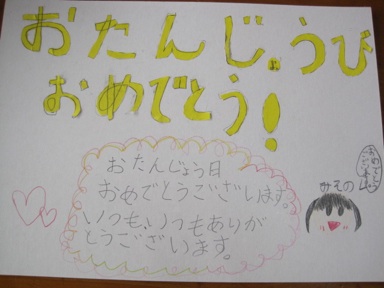 おたんじょうび
おめでとう!
おたんじょう日
おめでとうございます。
いつも、いつもありが
とうございます。
みえの